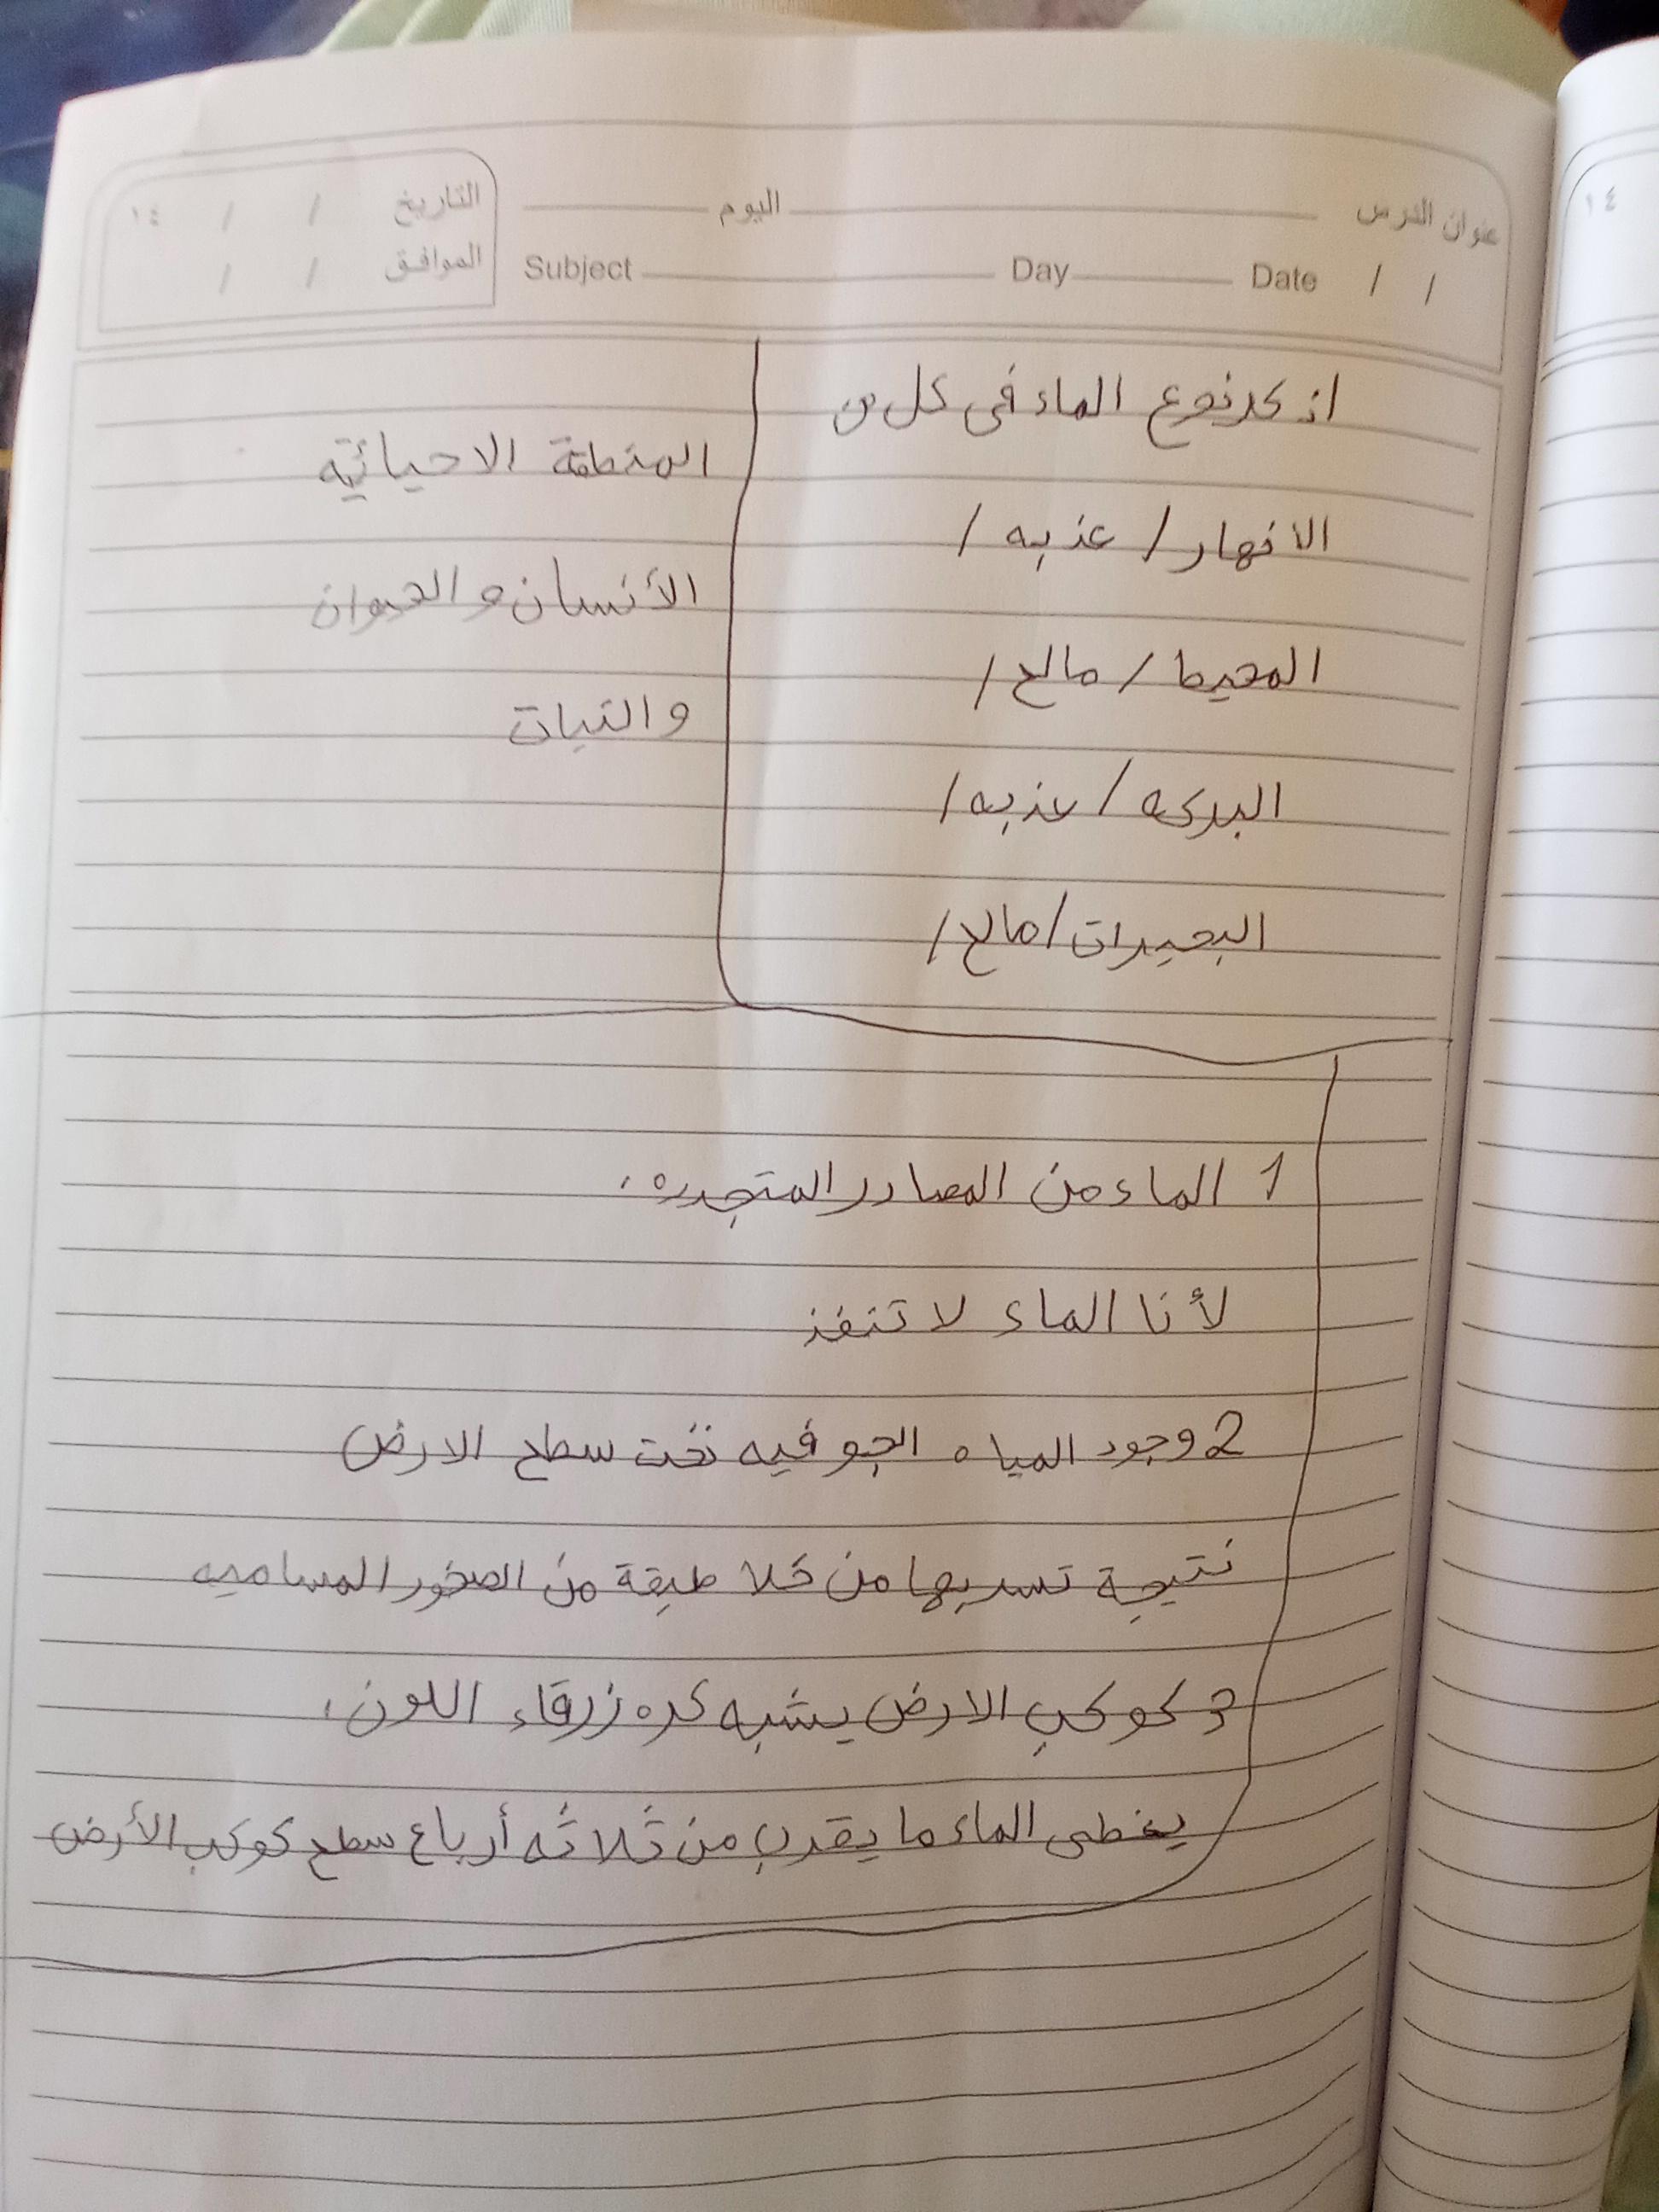 عنوان الدرس اليوم التاريخ / / ١٤
Subject Day Date / / الموافق / /
١٤
اذكر نوع الماء في كل من
الانهار / عذبه /
المحيط / مالح /
البركه / عذبه /
البحيرات / مالح /
المنطقة الاحيائيه
الأنسان والحيوان
والنبات
1 الماء من المصادر المتجدده.
لأنا الماء لا تنفذ
2 وجود المياه الجوفيه تحت سطح الارض
نتيجة تسربها من خلا طبقة من الصخور المساميه
3 كوكب الارض يشبه كره زرقاء اللون.
يغطى الماء ما يقرب من ثلاثه أرباع سطح كوكب الأرض